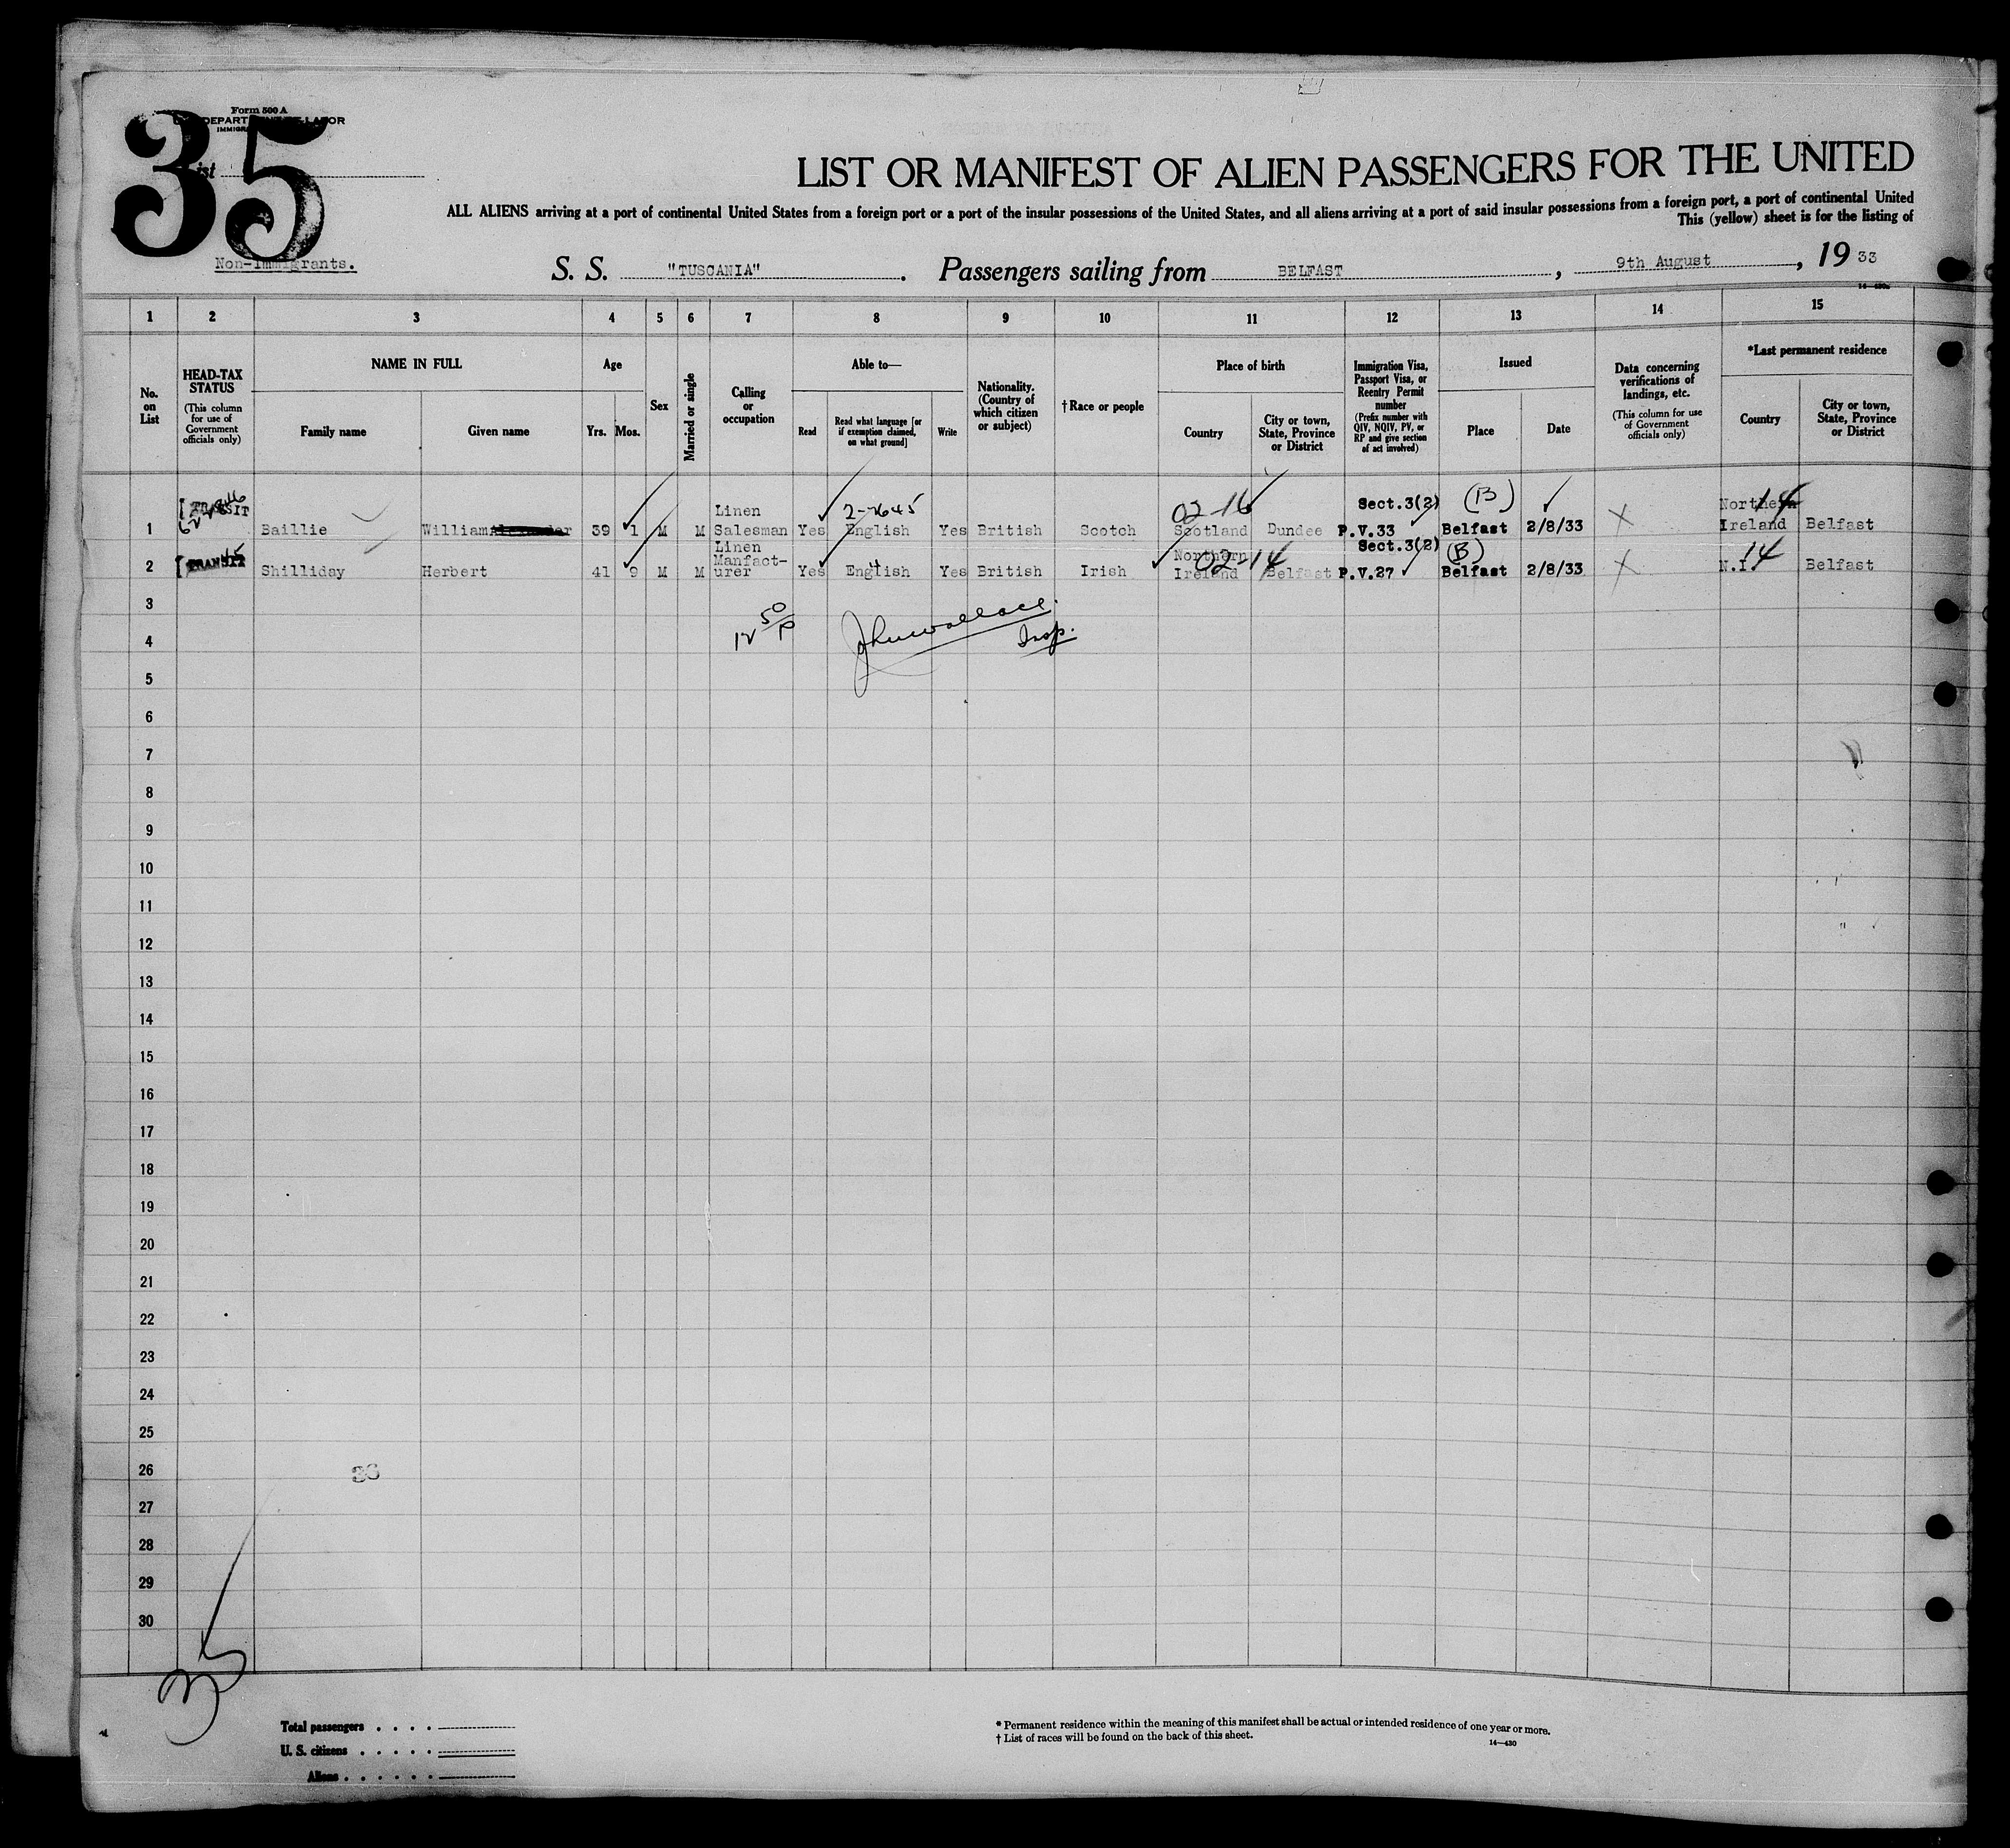 35
Form 500 A
List
Non-Immigrants.
LIST OR MANIFEST OF ALIEN PASSENGERS FOR THE UNITED
ALL ALIENS arriving at a port of continental United States from a foreign port or a port of the insular possessions of the United States, and all aliens arriving at a port of said insular possessions from a foreign port, a port of continental United
This (yellow) sheet is for the listing of
S. S. "TUSCANIA". Passengers sailing from BELFAST, 9th August, 19 33
1 2 3 4 5 6 7 8 9 10 11 12 13 14 15
No. on List
HEAD-TAX STATUS
(This column for use of Government officials only)
NAME IN FULL
Family name
Given name
Age
Yrs. Mos.
Sex
Married or single
Calling or occupation
Able to—
Read
Read what language [or if exemption claimed, on what ground]
Write
Nationality. (Country of which citizen or subject)
† Race or people
Place of birth
Country
City or town, State, Province or District
Immigration Visa, Passport Visa, or Reentry Permit number
(Prefix number with QIV, NQIV, PV, or RP and give section of act involved)
Issued
Place
Date
Data concerning verifications of landings, etc.
(This column for use of Government officials only)
*Last permanent residence
Country
City or town, State, Province or District
TRANSIT
02-16
Sect.3(2) (B)
14
1 Baillie William 39 1 M M Linen Salesman Yes English Yes British Scotch Scotland Dundee P.V.33 Belfast 2/8/33 X Northern Ireland Belfast
TRANSIT
02-14
Sect.3(2) (B)
14
2 Shilliday Herbert 41 9 M M Linen Manfact-urer Yes English Yes British Irish Northern Ireland Belfast P.V.27 Belfast 2/8/33 X N.I Belfast
3
John Wallace.
Insp.
4
5
6
7
8
9
10
11
12
13
14
15
16
17
18
19
20
21
22
23
24
25
26
27
28
29
30
35
Total passengers . . . .
U. S. citizens . . . . .
Aliens . . . . . .
* Permanent residence within the meaning of this manifest shall be actual or intended residence of one year or more.
† List of races will be found on the back of this sheet.
14—430